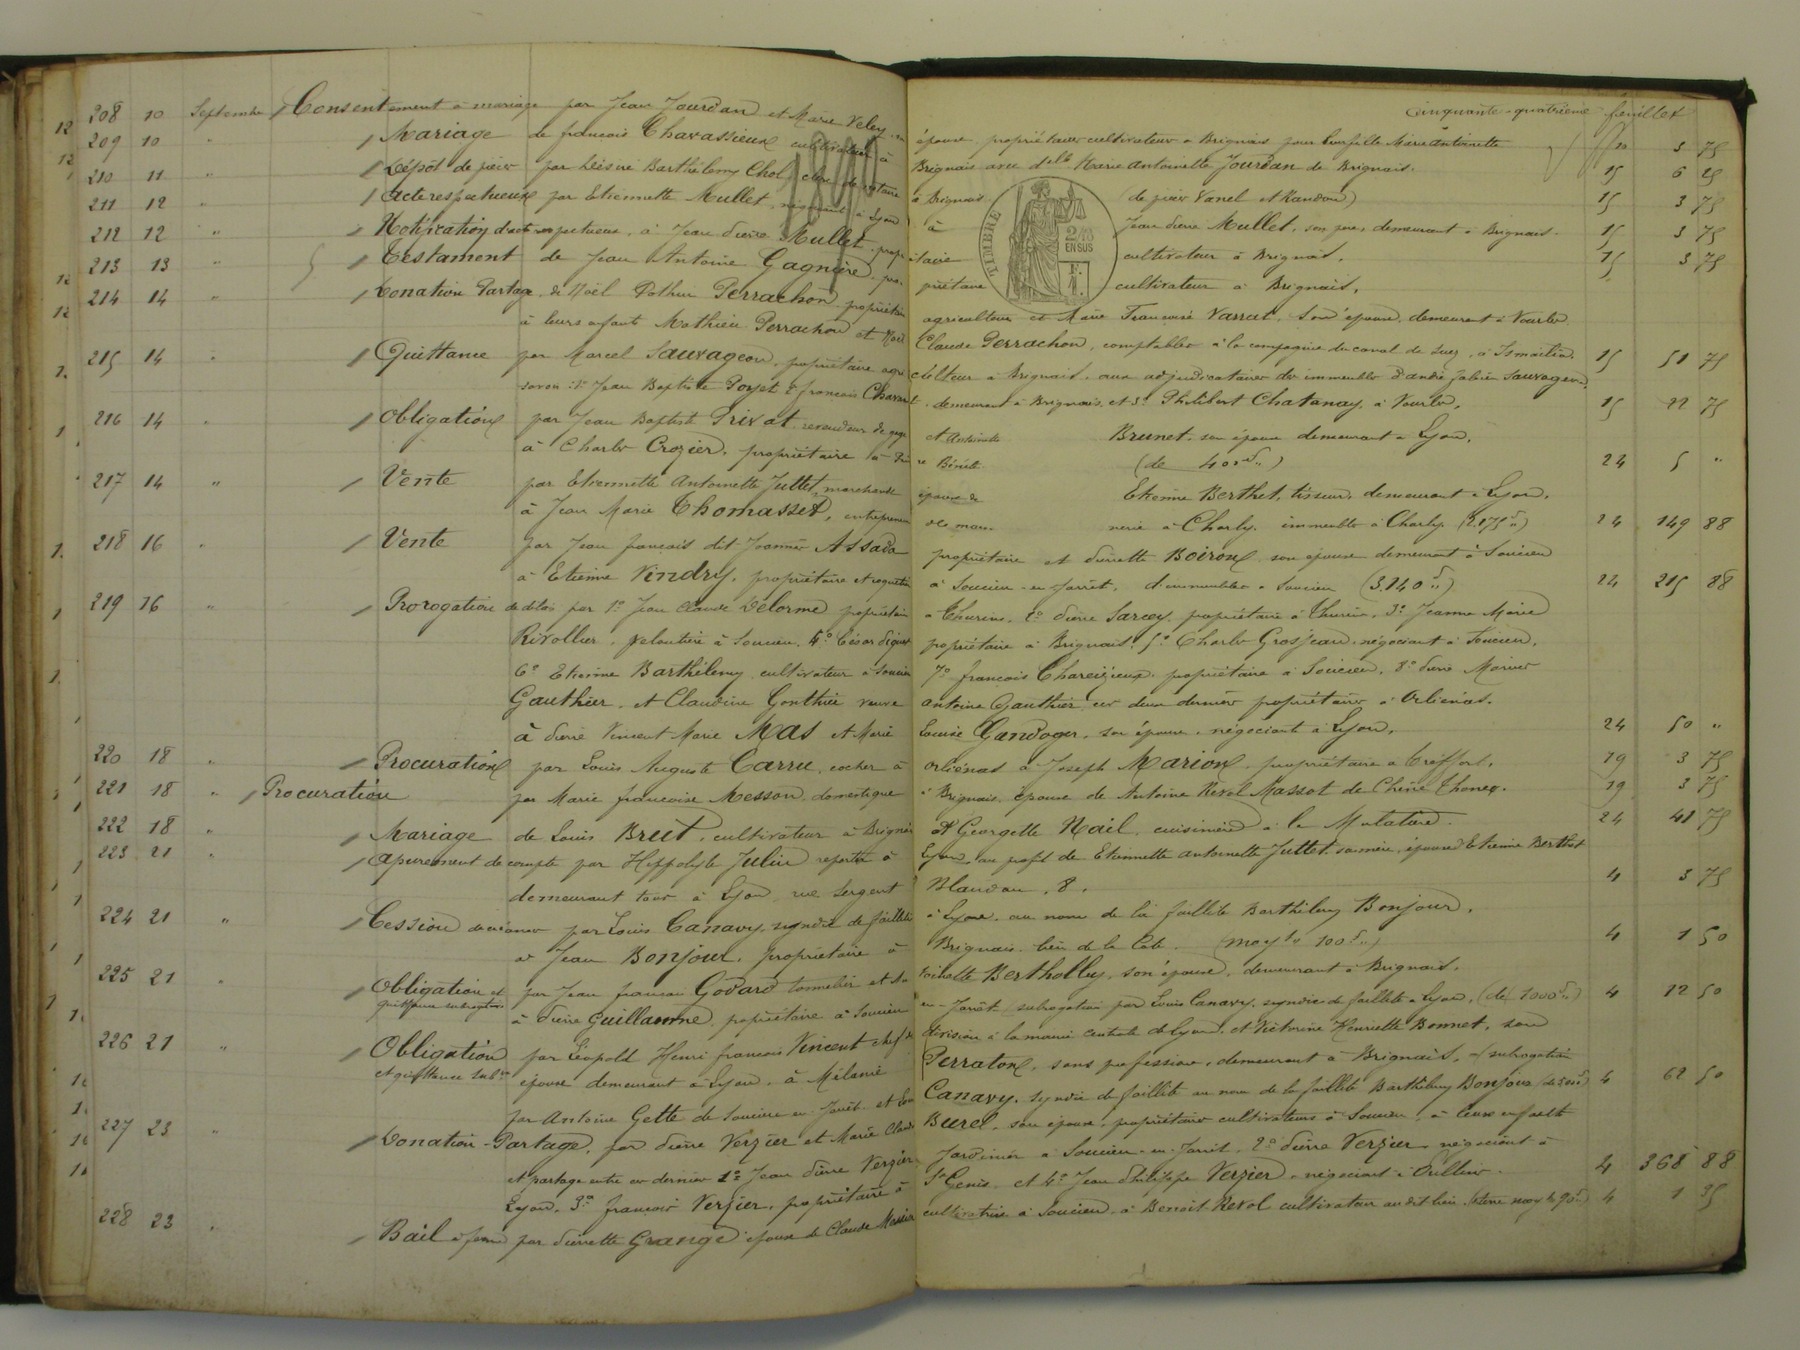 Cinquante-quatrième feuillet
208 10 Septembre Consentement à mariage par Jean Jourdan et Marie Veley, épouse, propriétaires cultivateurs à Brignais pour leur fille Marie Antoinette 10 3 75
209 10 " Mariage de françois Chavassieux cultivateur à Brignais avec delle Marie Antoinette Jourdan de Brignais. 15 6 25
210 11 " Dépôt de pièce par Désiré Barthélemy Chol, clerc de notaire à Brignais (de pièces Vanel et Randon) 15 3 75
211 12 " Acte respectueux par Etiennette Mullet, négociant à Lyon à Jean Pierre Mullet, son père, demeurant à Brignais. 15 3 75
212 12 " Notification d'acte respectueux, à Jean Pierre Mullet, propriétaire cultivateur à Brignais. 15 3 75
213 13 " Testament de Jean Antoine Gagnière, propriétaire cultivateur à Brignais.
1890
TIMBRE
2/10 EN SUS
214 14 " Donation Partage, de Noël Pothin Perrachon propriétaire agriculteur et Marie Françoise Varrat, son épouse, demeurant à Vourles
à leurs enfants Mathieu Perrachon et Noël Claude Perrachon, comptable à la compagnie du canal de Suez, à Ismaïlia. 15 51 75
215 14 " Quittance par Marcel Sauvageon, propriétaire agriculteur à Brignais, aux adjudicataires des immeubles d'andré fabien Sauvageon,
savoir: 1º Jean Baptiste Poyet 2º françois Chavant demeurant à Brignais, et 3º Philibert Chatanay, à Vourles. 15 22 75
216 14 " Obligation par Jean Baptiste Privat, revendeur de gages et Antoinette Brunet, son épouse demeurant à Lyon,
à Charles Crozier, propriétaire à Pierre Bénite (de 400f") 24 5 "
217 14 " Vente par Etiennette Antoinette Juttet, marchande épouse de Etienne Berthet, tisseur, demeurant à Lyon,
à Jean Marie Thomasset, entrepreneur de maçonnerie à Charly, immeubles à Charly (2.175f") 24 149 88
218 16 " Vente par Jean françois dit Joannès Assada propriétaire et Pierrette Boiron, son épouse demeurant à Soucieu
à Etienne Vindry, propriétaire et roquetier à Soucieu-en-Jarrêt, d'immeubles à Soucieu (3.140f") 24 215 88
219 16 " Prorogation de délai par 1º Jean Claude Delorme propriétaire à Thurins, 2º Pierre Sarcey, propriétaire à Thurins, 3º Jeanne Marie
Rivollier, veloutière à Soucieu, 4º César propriétaire à Brignais, 5º Charles Grosjean négociant à Soucieu,
6º Etienne Barthélemy cultivateur à Soucieu 7º françois Chareizieux, propriétaire à Soucieu, 8º Pierre Marius
Gauthier, et Claudine Gonthier veuve Antoine Gauthier ces deux derniers propriétaires à Orliénas.
à Pierre Vincent Marie Mas et Marie Louise Gandoger, son épouse, négociant à Lyon. 24 50 "
220 18 " Procuration par Louis Auguste Carru, cocher à Orliénas à Joseph Marion, propriétaire à Treffort. 19 3 75
221 18 " Procuration par Marie françoise Messon, domestique à Brignais, épouse de Antoine Revol Massot de Chêne Thonex. 19 3 75
222 18 " Mariage de Louis Breet, cultivateur à Brignais et Georgette Nail, cuisinière à la Mulatière. 24 41 75
223 21 " Apurement de compte par Hippolyte Julin reporter à Lyon, au profit de Etiennette Antoinette Juttet, sa mère, épouse Etienne Berthet
demeurant tous à Lyon, rue Sergent Blandan, 8. 4 3 75
224 21 " Cession de créance par Louis Canavy, syndic de faillite à Lyon, au nom de la faillite Barthélemy Bonjour,
à Jean Bonjour, propriétaire à Brignais, lieu de la Côte. (moyt 100f") 4 1 50
225 21 " Obligation et quittance subrogative par Jean françois Godard tonnelier et Antoinette Bertholley, son épouse, demeurant à Brignais,
à Pierre Guillaume, propriétaire à Soucieu-en-Jarrêt (subrogation par Louis Canavy, syndic de faillite à Lyon. (de 1000f") 4 12 50
226 21 " Obligation et quittance subve par Léopold Henri françois Vincent chef de division à la mairie centrale de Lyon, et Victorine Henriette Bonnet, son
épouse demeurant à Lyon, à Mélanie Perraton, sans profession, demeurant à Brignais, (subrogation
Canavy, syndic de faillite au nom de la faillite Barthélemy Bonjour 4 62 50
227 23 " Donation-Partage, par Antoine Gette de Soucieu en Jarrêt, et Burel, son épouse, propriétaires cultivateurs à Soucieu, à leurs enfants
par Pierre Verzier et Marie Claude
et partage entre ces derniers 1º Jean Pierre Verzier Jardinier à Soucieu-en-Jarrêt, 2º Pierre Verzier négociant à
Lyon, 3º françois Verzier, propriétaire à St Genis, et 4º Jean Philippe Verzier, négociant à Oullins. 4 368 88
228 23 " Bail à ferme par Pierrette Grange épouse de Claude Messier cultivatrice à Soucieu, à Benoit Revol cultivateur au dit lieu 4 1 35